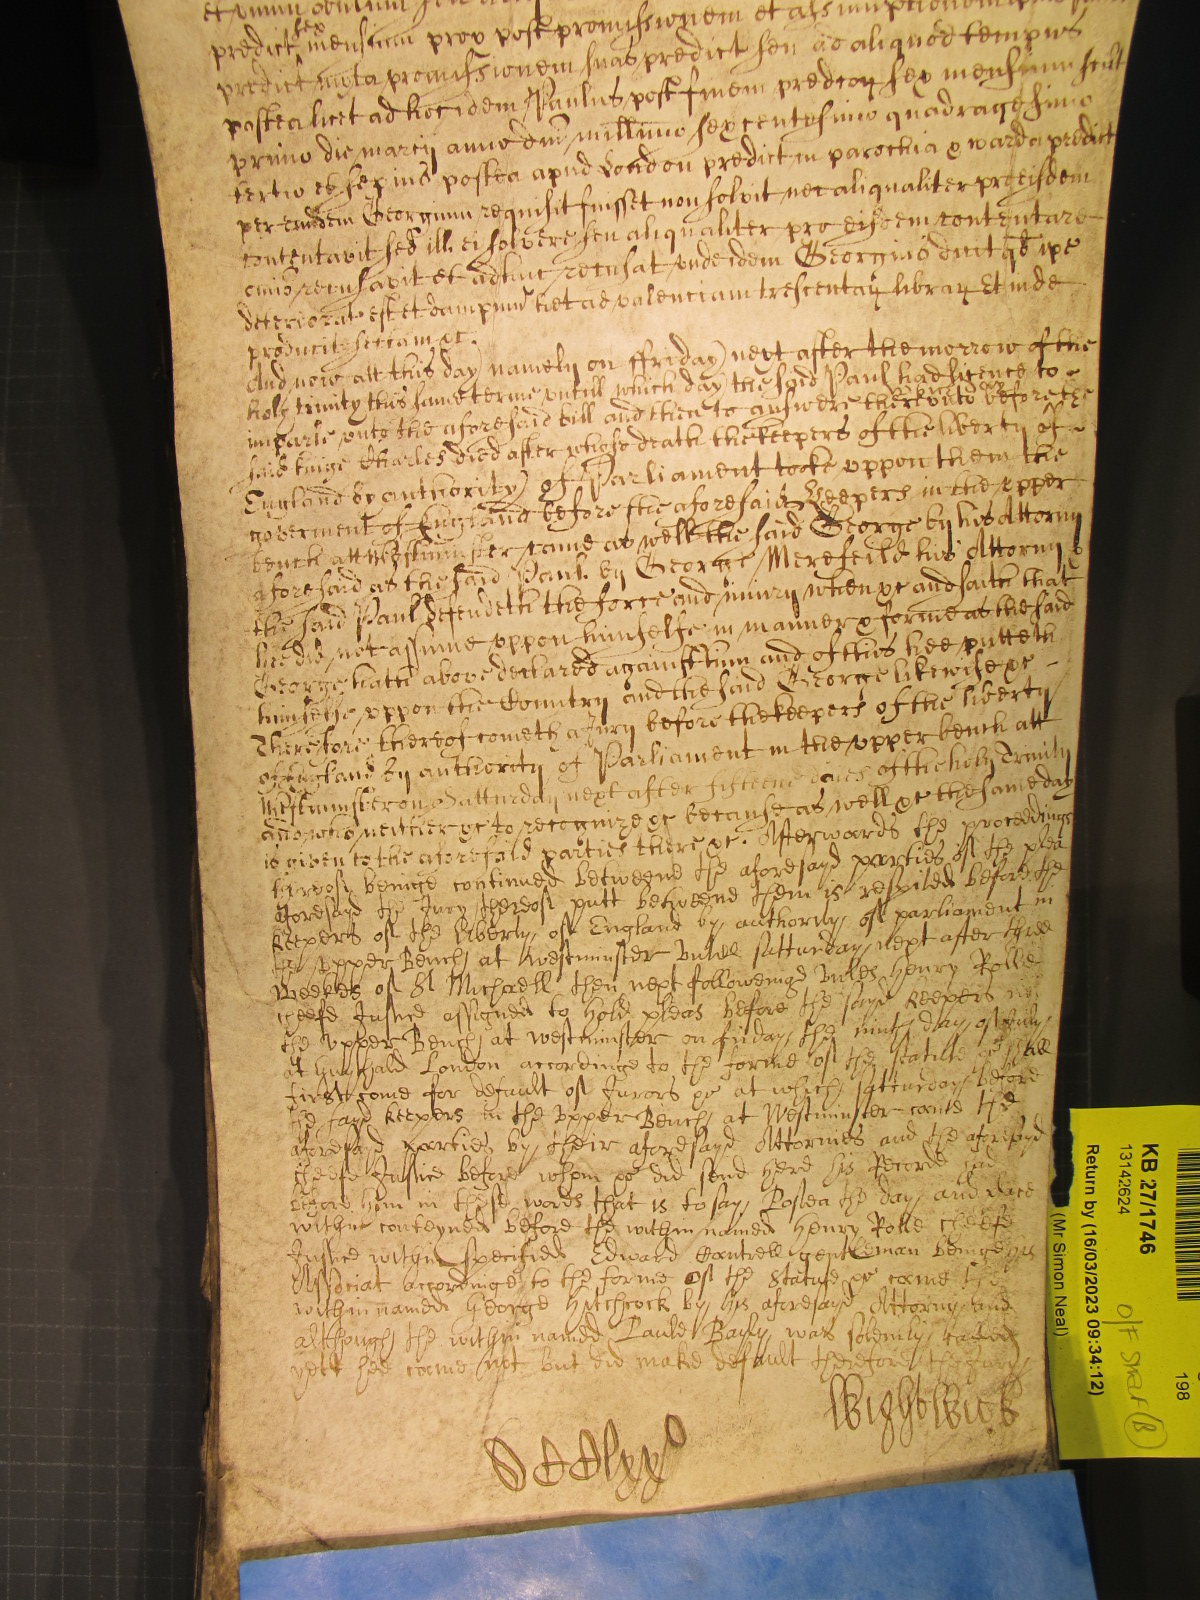 predict sex mensium prox post promissionem et assumptionem
predict iuxta promissionem suas predict seu ad aliquod tempus
postea licet ad hoc idem Paulus post finem predcor sex mensium scilt
primo die marcij anno dni millimo sexcentesimo quadragesimo
tertio et sepius postea apud London predict in parochia & warda predict
per eundem Georgium requisit fuisset non solvit nec aliqualiter pro eisdem
contentavit sed ill ei solvere seu aliqualiter pro eisdem contentare
omio recusavit et adhuc recusat unde idem Georgius dicit qd ipe
deteriorat est et dampnu het ad valenciam trescentar librar Et inde
producit sectam &c.
And now att this day namely on ffriday next after the morrow of the
holy trinity this same terme untill which day the said Paul had licence to
imparle unto the aforesaid bill and then to answere thereunto before the
said kinge Charles died after whose death the keepers of the liberty of
England by authority of Parliament tooke uppon them the
goverment of England before the aforesaid Keepers in the upper
bench att Westminster came as well the said George by his Attorny
aforesaid as the said Paul by George Merefeild his Attorny &
the said Paul defendeth the force and iniury when &c and saith that
hee did not assume uppon himselfe in manner & forme as the said
George hath above declared against him and of this hee putteth
himselfe uppon the Country and the said George likewise &c
Therefore thereof cometh a Jury before the keepers of the liberty
of England by authority of Parliament in the upper bench att
Westminster on Satturday next after fifteene daies of the holy Trinity
and who neither &c to recognize &c because as well &c the same day
is given to the aforesaid parties there &c. Afterwards the proceedings
thereof beinge continued betweene the aforesayd parties of the plea
aforesayd the Jury thereof putt betweene them is respited before the
Keepers of the liberty of England by authority of parliament in
the upper Bench at Westminster untill satturday next after three
Weekes of St Michaell then next followeinge unles Henry Rolle
cheefe Justice assigned to hold pleas before the sayd Keepers in
the upper Bench at Westminster on friday the ninth day of July
at Guyhald London accordinge to the forme of the statute &c shall
first come for default of Jurors &c at which satturday before
the sayd Keepers in the upper Bench at Westminster come the
aforesayd parties by their aforesayd Attornies and the aforesayd
cheefe Justice before whom &c did send here his Record had
before him in these words that is to say Postea the day and place
within conteyned before the within named Henry Rolle cheefe
Justice within specified Edward Cantrell gentleman beinge his
Associat accordinge to the forme of the statute &c came the
within named George Hitchcock by his aforesayd Attorny and
although the within named Paule Bayly was solemly called
yett hee came not but did make default therefore the Jury
Wightwick
KB 27/1746
13142624
Return by (16/03/2023 09:34:12)
(Mr Simon Neal)
198